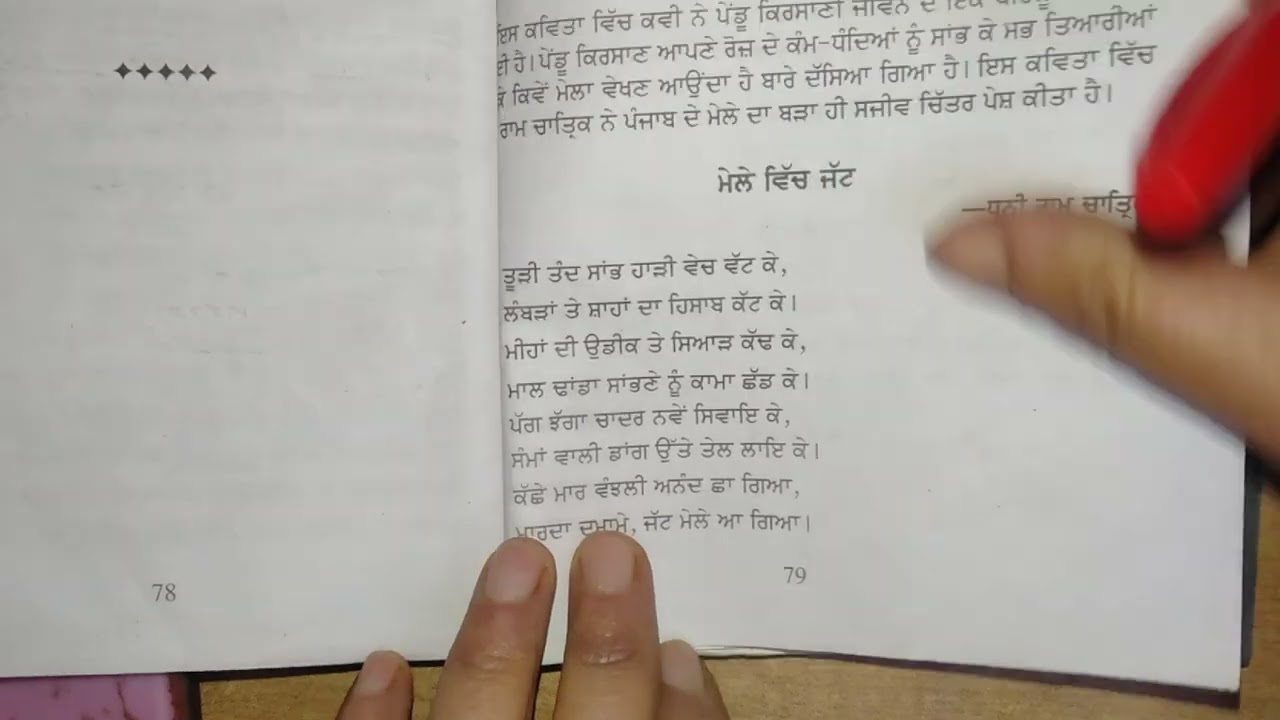 ਇਸ ਕਵਿਤਾ ਵਿੱਚ ਕਵੀ ਨੇ ਪੇਂਡੂ ਕਿਰਸਾਣੀ ਜੀਵਨ ਦੇ ਇਕ
ਹੈ। ਪੇਂਡੂ ਕਿਰਸਾਣ ਆਪਣੇ ਰੋਜ਼ ਦੇ ਕੰਮ-ਧੰਦਿਆਂ ਨੂੰ ਸਾਂਭ ਕੇ ਸਭ ਤਿਆਰੀਆਂ
ਕਿਵੇਂ ਮੇਲਾ ਵੇਖਣ ਆਉਂਦਾ ਹੈ ਬਾਰੇ ਦੱਸਿਆ ਗਿਆ ਹੈ। ਇਸ ਕਵਿਤਾ ਵਿੱਚ
ਰਾਮ ਚਾਤ੍ਰਿਕ ਨੇ ਪੰਜਾਬ ਦੇ ਮੇਲੇ ਦਾ ਬੜਾ ਹੀ ਸਜੀਵ ਚਿੱਤਰ ਪੇਸ਼ ਕੀਤਾ ਹੈ।
ਮੇਲੇ ਵਿੱਚ ਜੱਟ
—ਧਨੀ ਰਾਮ
ਤੂੜੀ ਤੰਦ ਸਾਂਭ ਹਾੜੀ ਵੇਚ ਵੱਟ ਕੇ,
ਲੰਬੜਾਂ ਤੇ ਸ਼ਾਹਾਂ ਦਾ ਹਿਸਾਬ ਕੱਟ ਕੇ।
ਮੀਹਾਂ ਦੀ ਉਡੀਕ ਤੇ ਸਿਆੜ ਕੱਢ ਕੇ,
ਮਾਲ ਢਾਂਡਾ ਸਾਂਭਣੇ ਨੂੰ ਕਾਮਾ ਛੱਡ ਕੇ।
ਪੱਗ ਝੱਗਾ ਚਾਦਰ ਨਵੇਂ ਸਿਵਾਇ ਕੇ,
ਸੰਮਾਂ ਵਾਲੀ ਡਾਂਗ ਉੱਤੇ ਤੇਲ ਲਾਇ ਕੇ।
ਕੱਛੇ ਮਾਰ ਵੰਝਲੀ ਅਨੰਦ ਛਾ ਗਿਆ,
ਮਾਰਦਾ ਦਮਾਮੇ, ਜੱਟ ਮੇਲੇ ਆ ਗਿਆ।
78
79